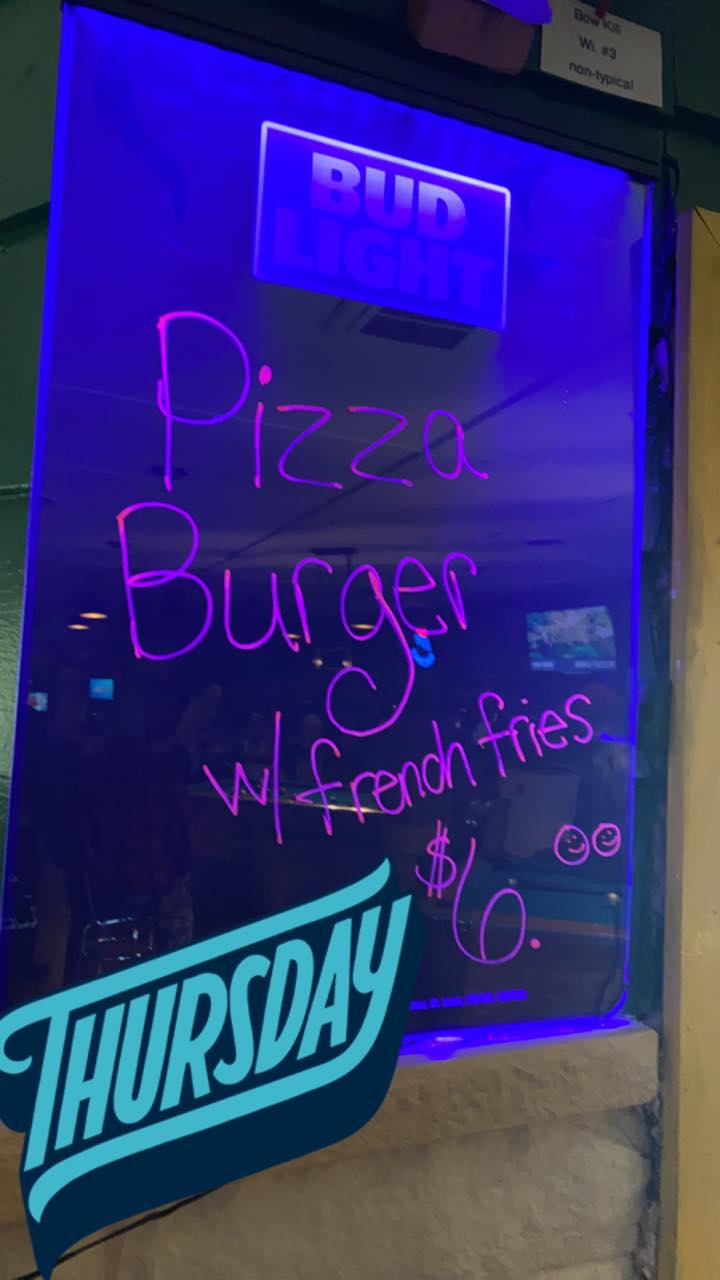 Bow Kill
Wi. #3
non-typical
BUD
LIGHT
Pizza
Burger
w/ french fries
$6.00
THURSDAY